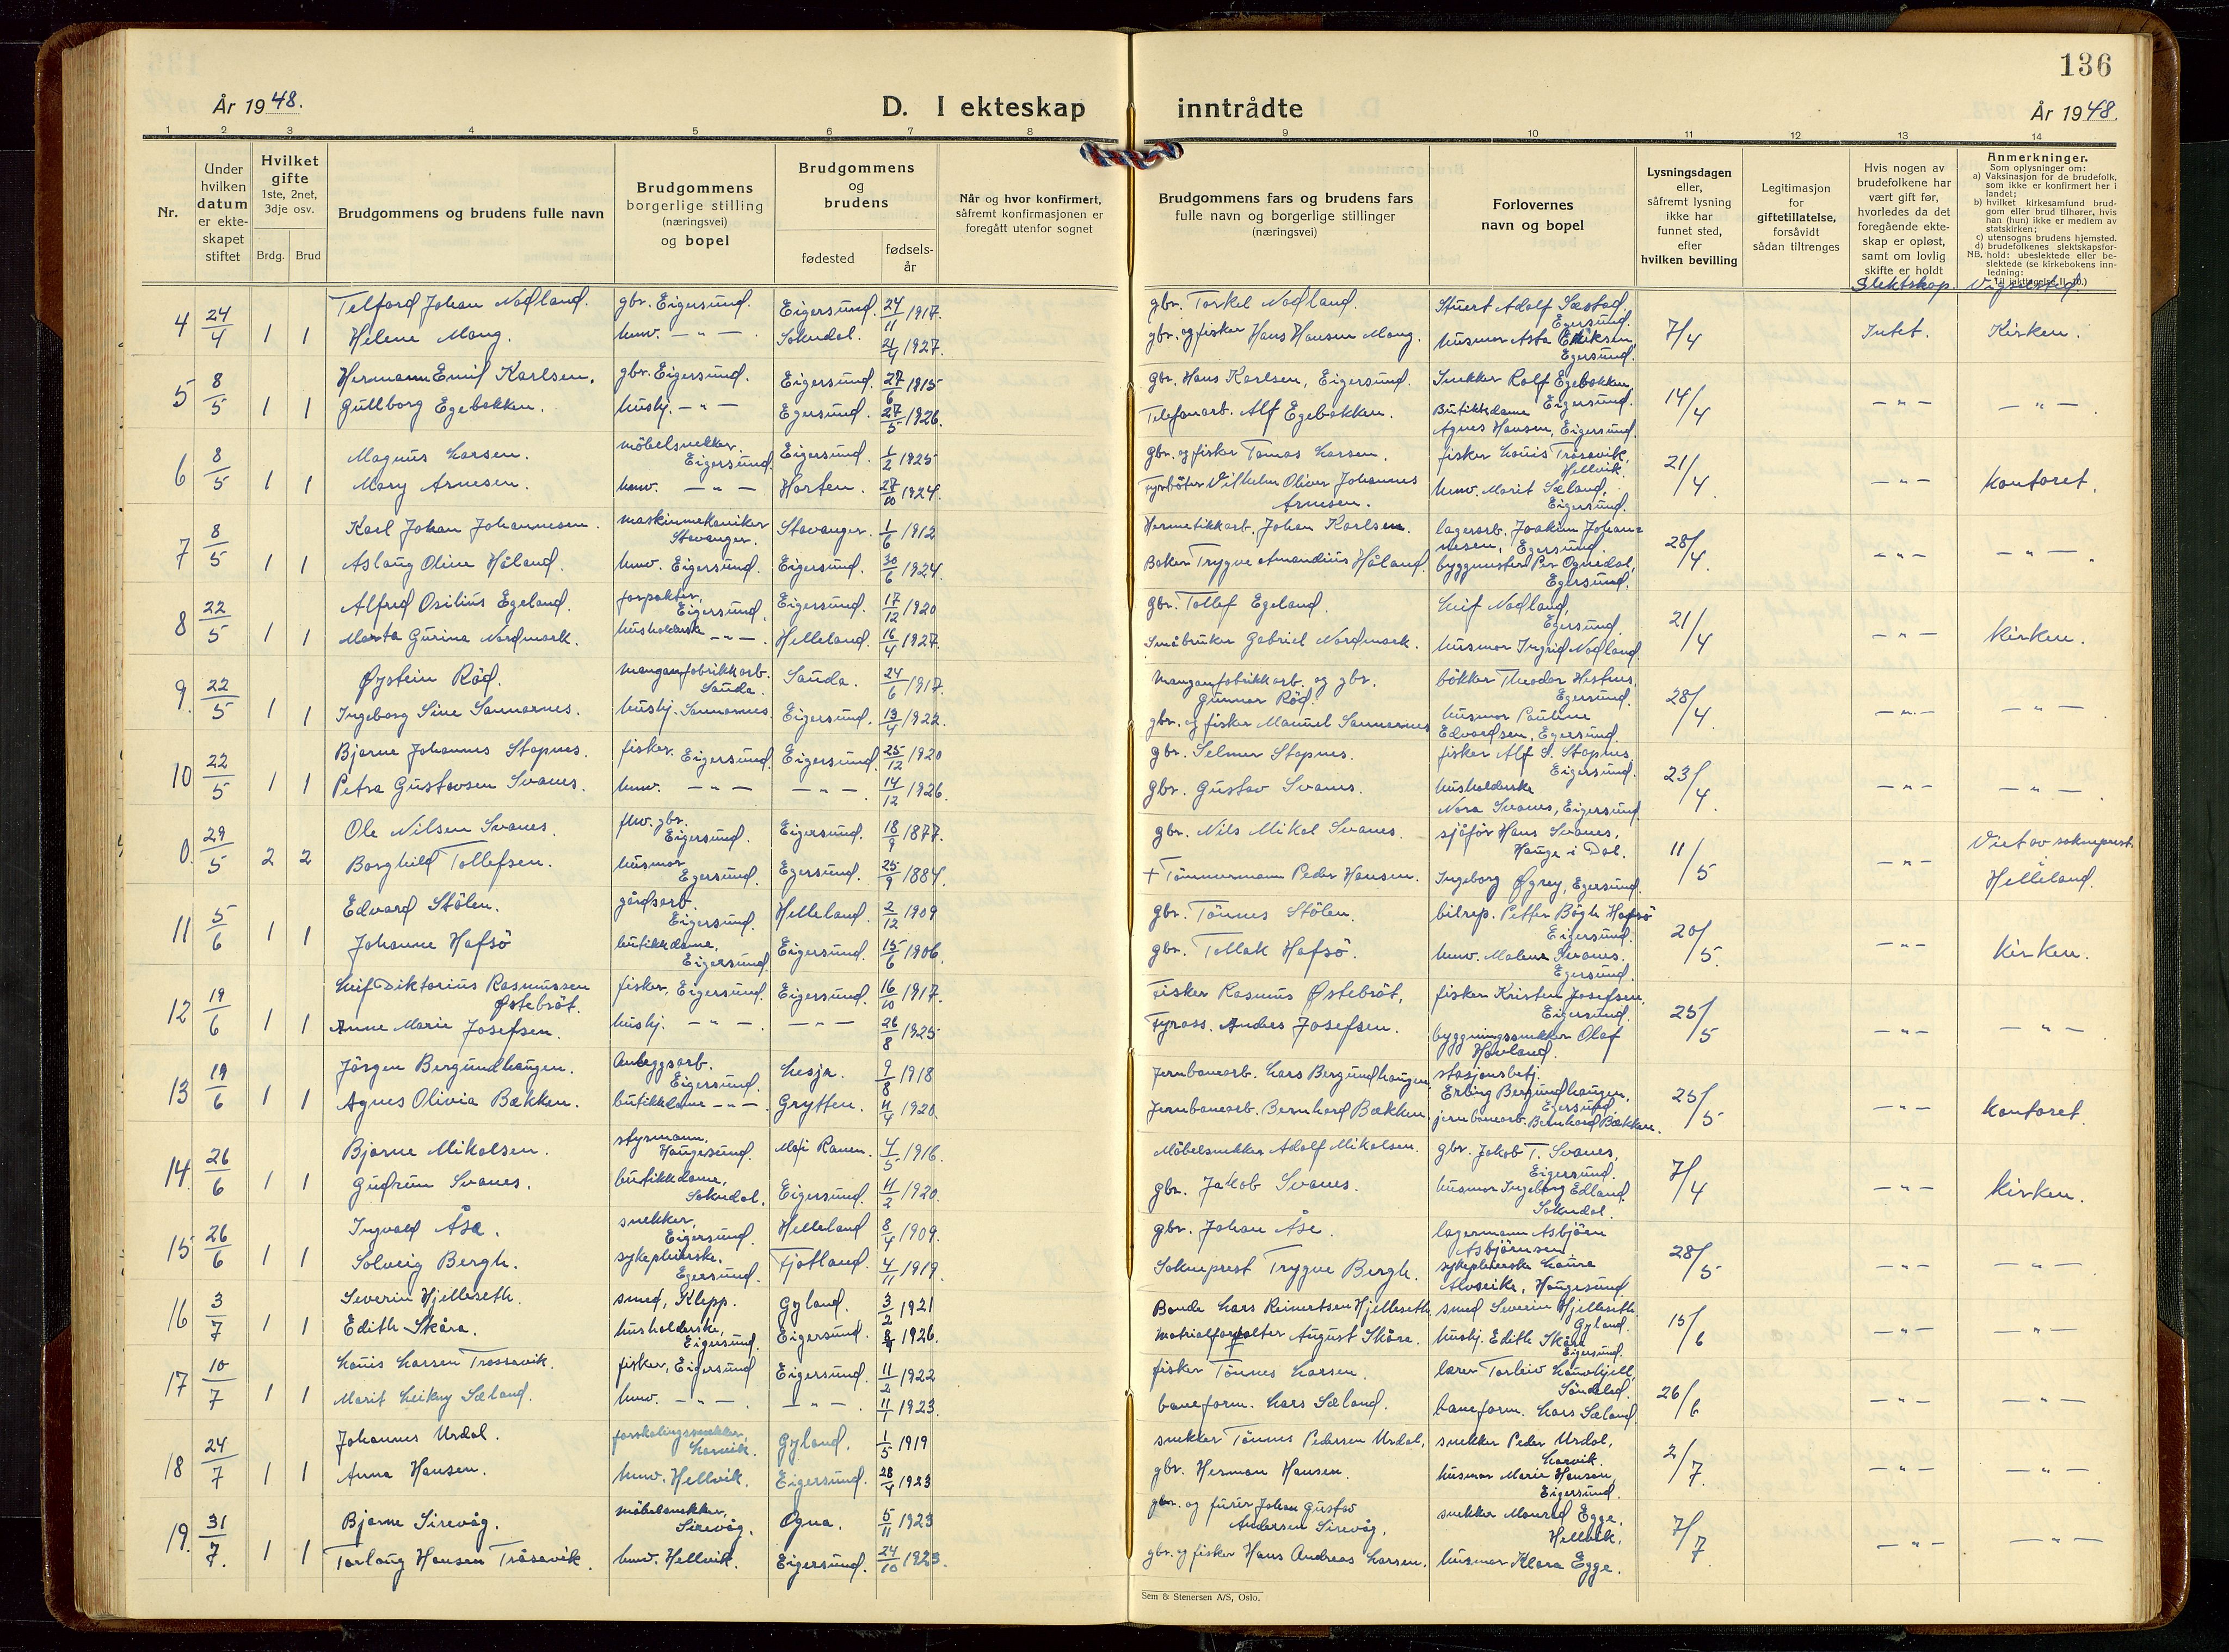 136
År 1948.
D. I ekteskap inntrådte
År 1948.
1 2 3 4 5 6 7 8 9 10 11 12 13 14
Nr.
Under hvilken datum er ekteskapet stiftet
Hvilket gifte 1ste, 2net, 3dje osv.
Brdg. Brud
Brudgommens og brudens fulle navn
Brudgommens borgerlige stilling (næringsvei) og bopel
Brudgommens og brudens
fødested
fødselsår
Når og hvor konfirmert, såfremt konfirmasjonen er foregått utenfor sognet
Brudgommens fars og brudens fars fulle navn og borgerlige stillinger (næringsvei)
Forlovernes navn og bopel
Lysningsdagen eller, såfremt lysning ikke har funnet sted, efter hvilken bevilling
Legitimasjon for giftetillatelse, forsåvidt sådan tiltrenges
Hvis nogen av brudefolkene har vært gift før, hvorledes da det foregående ekteskap er opløst, samt om lovlig skifte er holdt
Anmerkninger.
Som oplysninger om:
a) Vaksinasjon for de brudefolk, som ikke er konfirmert her i landet;
b) hvilket kirkesamfund brudgom eller brud tilhører, hvis han (hun) ikke er medlem av statskirken;
c) utensogns brudens hjemsted.
d) brudefolkenes slektskapsforhold: ubeslektede eller beslektede (se kirkebokens innledning:
Slektskap. Vigselsted.
4 24/4 1 1 Telford Johan Nodland. gbr. Eigersund. Eigersund. 24/11 1917. gbr. Torkel Nodland. Stuert Adolf Sæstad Egersund. 7/4 Intet. Kirken.
Helene Mong. hmv. — " — Sokndal. 21/4 1927. gbr. og fisker Hans Hansen Mong. husmor Asta Eriksen, Egersund.
5 8/5 1 1 Hermann Emil Karlsen. gbr. Eigersund. Eigersund. 27/6 1915 gbr. Hans Karlsen, Eigersund. Snekker Rolf Egebakken, Eigersund. 14/4 — " — — " —
Gullborg Egebakken. hushj. — " — Egersund. 27/5 1926. Telefonarb. Alf Egebakken. Butikkdame Agnes Hansen, Eigersund.
6 8/5 1 1 Magnus Larsen. möbelsnekker. Eigersund. Eigersund. 1/2 1925 gbr. og fisker Tomas Larsen. fisker Louis Trosavik, Hellvik. 21/4 — " — kontoret.
Mary Arnesen. hmv. — " — Horten. 27/10 1924. Fyrböter Vilhelm Oliver Johannes Arnesen. hmv. Marit Sæland, Eigersund.
7 8/5 1 1 Karl Johan Johannesen. maskinmekaniker Stavanger. Stavanger. 1/6 1912 Hermetikkarb. Johan Karlsen. lagerarb. Joakim Johannesen, Egersund. 28/4 — " — — " —
Aslaug Oline Håland. hmv. Eigersund. Eigersund. 30/6 1924. Baker Trygve Amandius Håland. byggmester Per Ognedal, Egersund.
8 22/5 1 1 Alfred Osilius Egeland. forpakter, Eigersund. Eigersund. 17/12 1920 gbr. Tollef Egeland. Leif Nodland, Egersund. 21/4 — " — kirken.
Marta Gurina Nordmark. husholderske — " — Helleland. 16/4 1927. Småbruker Gabriel Nordmark. husmor Ingrid Nodland.
9. 22/5 1 1 Øystein Röd. Manganfabrikkarb. Sauda. Sauda. 24/6 1917. Manganfabrikkarb. og gbr. Gunnar Röd. bökker Theodor Hestnes, Egersund. 28/4 — " — — " —
Ingeborg Sine Sannarnes. hushj. Sannarnes. Eigersund. 13/4 1922. gbr. og fisker Manuel Sannarnes husmor Pauline Edvardsen, Egersund.
10 22/5 1 1 Bjarne Johannes Stapnes. fisker. Eigersund. Eigersund. 25/12 1920 gbr. Selmer Stapnes. fisker Alf S. Stapnes, Eigersund. 23/4 — " — — " —
Petra Gustavsen Svanes. hmv. — " — — " — 14/12 1926. gbr. Gustav Svanes. husholderske Nora Svanes, Eigersund.
0. 29/5 2 2 Ole Nilsen Svanes. fhv. gbr. Eigersund. Eigersund. 18/9 1877. gbr. Nils Mikal Svanes. sjåför Hans Svanes, Hauge i Dal. 11/5 — " — Viet av sokneprest. Helleland.
Borghild Tollefsen. husmor Egersund. Egersund. 25/9 1884. + Tömmermann Peder Hansen. Ingeborg Øgrey, Egersund.
11 5/6 1 1 Edvard Stölen. gårdsarb. Eigersund. Helleland. 2/12 1909 gbr. Tönnes Stölen. bilrep. Petter Bögh Hafsö Eigersund. 20/5. — " — kirken.
Johanne Hafsö butikkdame, Eigersund. Eigersund. 15/6 1906. gbr. Tollak Hafsö. hmv. Malene Svanes. Egersund.
12 19/6 1 1 Leif Diktorius Rasmussen Østebröt. fisker, Eigersund. Eigersund. 16/10 1917. Fisker Rasmus Østebröt, fisker Kristen Josefsen. Eigersund. 25/5 — " — — " —
Anne Marie Josefsen. hushj. — " — — " — 26/8 1925 Fyrass. Andres Josefsen. byggningssnekker Olaf Hovland.
13 19/6 1 1 Jörgen Bergundhaugen. Anleggsarb. Eigersund. Lesja. 9/8 1918 Jernbanearb. Lars Bergundhaugen. stasjonsbetj. Erling Bergundhaugen, Egersund. 25/5 — " — kontoret.
Agnes Olivia Bækken. butikkdame — " — Grytten. 11/4 1920. Jernbanearb. Bernhard Bækken. jernbanearb. Bernhard Bækken.
14. 26/6 1 1 Bjarne Mikalsen. styrmann, Haugesund. Mo i Ranen. 4/5 1916 Möbelsnekker Adolf Mikalsen. gbr. Jakob T. Svanes, Eigersund. 7/4 — " — kirken.
Gudrun Svanes. butikkdame, Sokndal. Eigersund. 11/2 1920. gbr. Jakob Svanes. husmor Ingeborg Edland. Sokndal.
15 26/6 1 1 Ingvald Åse. snekker, Eigersund. Helleland 8/4 1909. gbr. Johan Åse. lagermann Asbjörn Asbjörnsen 28/5 — " — — " —
Solveig Bergh. sykepleierske, Egersund. Fjotland. 4/11 1919. Sokneprest Trygve Bergh. sykepleierske Laura Alvseike, Haugesund.
16 3/7 1 1 Severin Hjelleseth. smed, Klepp. Gyland. 3/2 1921 Bonde Lars Reinertsen Hjelleseth. smed Severin Hjelleseth Gyland. 15/6 — " — — " —
Edith Skåra. husholderske, Eigersund. Eigersund. 8/9 1926. Matrialforvalter August Skåra. hushj. Edith Skåra Eigersund.
17 10/7 1 1 Louis Larsen Trossavik. fisker, Eigersund Eigersund. 11/2 1922 fisker Tönnes Larsen. lærer Torleiv Söndeled. 26/6 — " — — " —
Marit Leikny Sæland. hmv. — " — — " — 11/1 1923. baneform. Lars Sæland. baneform. Lars Sæland.
18 24/7 1 1 Johannes Urdal. forskalingssnekker, Larvik. Gyland. 1/5 1919 snekker Tönnes Pedersen Urdal, snekker Peder Urdal, Larvik. 2/7. — " — — " —
Anna Hansen. hmv. Hellvik. Eigersund. 28/4 1923 gbr. Herman Hansen. husmor Marie Hansen, Eigersund.
19. 31/7. 1 1 Bjarne Sirevåg. möbelsnekker, Sirevåg. Ogna. 5/11 1923 gbr. og furér Johan Gustav Andersen Sirevåg, snekker Monrad Egge, Hellvik, 7/7 — " — — " —
Torlaug Hansen Tråsavik. hmv. Hellvik. Eigersund. 24/10 1923. gbr. og fisker Hans Andreas Larsen. husmor Klara Egge.
Sem & Stenersen A/S, Oslo.